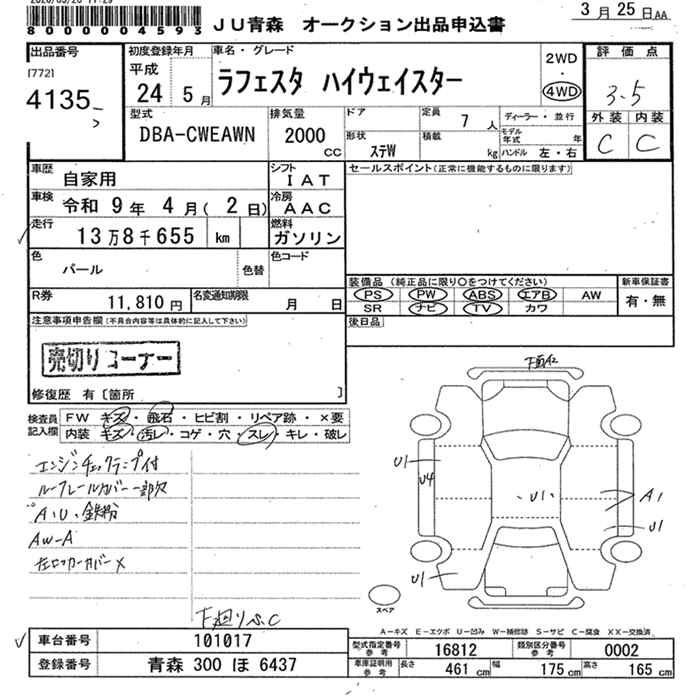 8000004593 JU青森 オークション出品申込書 3月25日AA
出品番号 初度登録年月 車名・グレード 評価点
[772] 平成 ラフェスタ ハイウェイスター 2WD・4WD 3.5
4135 24 5月
型式 排気量 ドア 定員 7人 ディーラー・並行 外装 内装
DBA-CWEAWN 2000cc 形状 ステW 積載 kg モデル年式 年 C C
ハンドル 左・右
車歴 自家用 シフト IAT セールスポイント(正常に機能するものに限ります)
車検 令和 9年 4月(2日) 冷房 AAC
走行 13万8千655 km 燃料 ガソリン
色 パール 色替 色コード
装備品(純正品に限り〇をつけてください) 新車保証書
R券 11,810円 名変通知期限 月 日 PS PW ABS エアB AW 有・無
SR ナビ TV カワ
注意事項申告欄(不具合内容等は具体的に記入して下さい) 後日品
売切りコーナー
修復歴 有〔箇所 〕
検査員記入欄 FW キズ・飛石・ヒビ割・リペア跡・×要
内装 キズ・汚レ・コゲ・穴・スレ・キレ・破レ
エンジンチェックランプ付
ルーフレールカバー一部欠
A・U・鉄粉
AW-A
左ロッカーカバー×
下廻りSC
下面A2
U1
U4
U1
A1
U1
U1
スペア
A-キズ E-エクボ U-凹み W-補修跡 S-サビ C-腐食 XX-交換済
車台番号 101017 型式指定番号参考 16812 類別区分番号参考 0002
登録番号 青森 300 ほ 6437 車庫証明用参考 長さ 461cm 幅 175cm 高さ 165cm